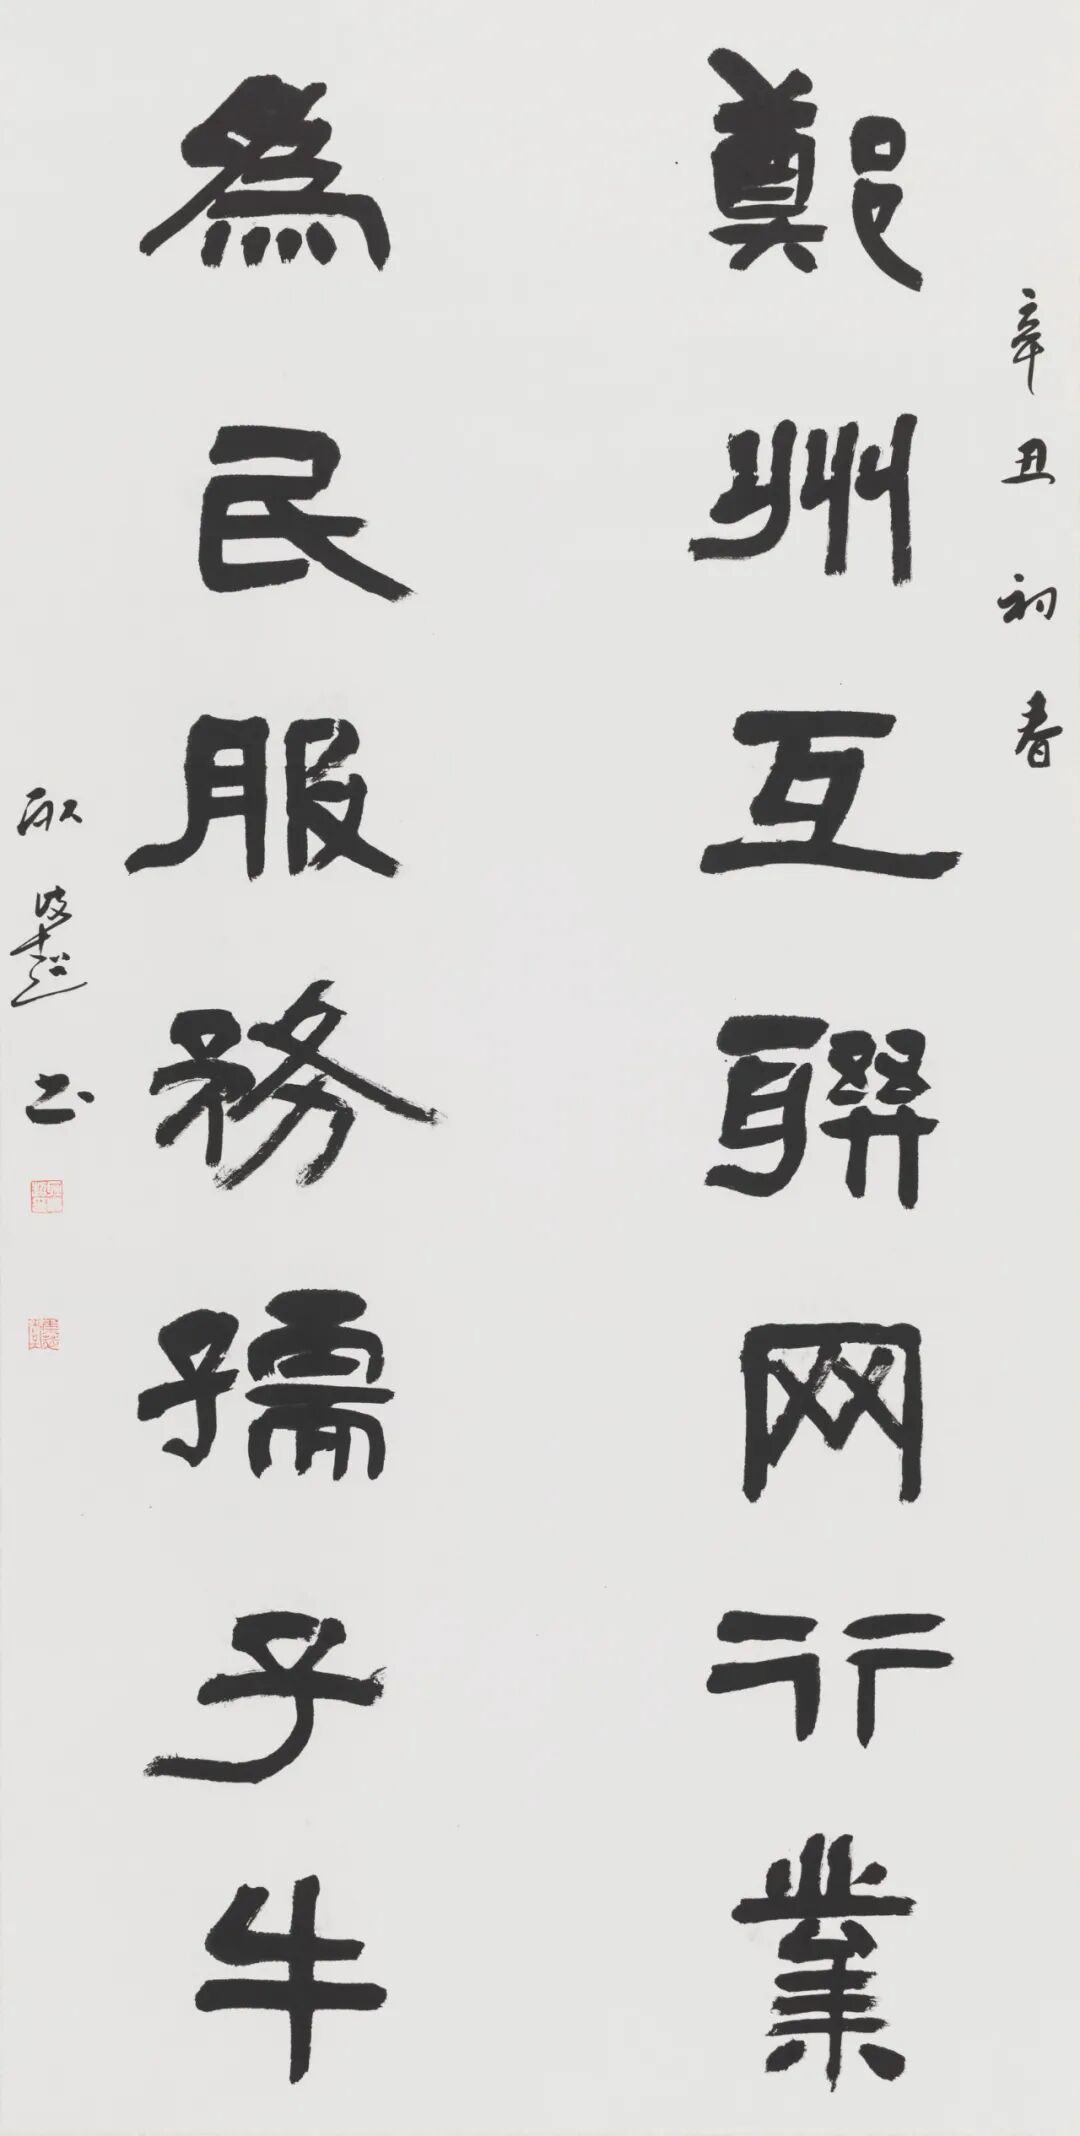 辛丑初春
鄭州互聯网行業
為民服務孺子牛
书